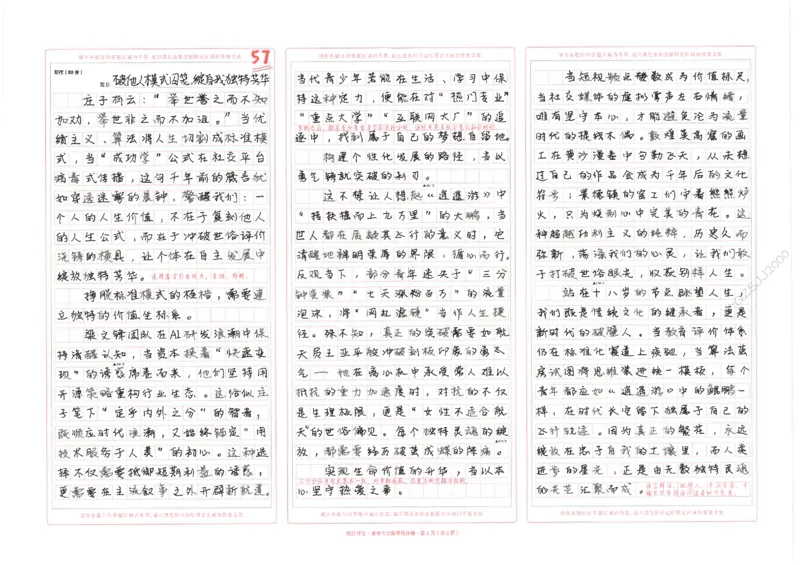 57
写作(60分)
题目 破他人模式囚笼，绽自我独特芳华
庄子有云：“举世誉之而不知
如劝，举世非之而不加沮。”当优
绩主义、算法将人生切割成标准模
式，当“成功学”公式在社交平台
病毒式传播，这句千年前的箴言犹
如穿透迷雾的晨钟，警醒我们：一
个人的人生价值，不在于复刻他人
的人生公式，而在于冲破世俗评价
浇铸的模具，让个体在自主发展中
绽放独特芳华。
挣脱标准模式的桎梏，需要建
立独特的价值坐标系。
梁文锋团队在AI研发浪潮中保
持清醒认知，当资本挟着“快速变
现”的诱惑席卷而来，他们坚持用
开源策略重构行业生态。这恰似庄
子笔下“定乎内外之分”的智者，
既顺应时代浪潮，又始终锚定“用
技术服务于人类”的初心。这种选
择不仅需要抵御短期利益的诱惑，
更需要在主流叙事之外开辟新轨道。
当代青少年若能在生活、学习中保
持这种定力，便能在对“热门专业”
“重点大学”“互联网大厂”的追
逐中，找到属于自己的梦想自留地。
构建个性化发展的路径，当以
勇气铸就突破的利刃。
这不禁让人想起《逍遥游》中
“抟扶摇而上九万里”的大鹏，当
世人都在质疑其飞行的意义时，它
清醒地辨明荣辱的界限，循心而行。
反观当下，部分青年迷失于“三分
钟变装”“七天涨粉百万”的流量
泡沫，将“网红滤镜”当作人生捷
径。殊不知，真正的突破需要如航
天员王亚平般冲破刻板印象的勇志
气——她在离心机中承受常人难以
抵抗的重力加速度时，对抗的不仅
是生理极限，更是“女性不适合航
天”的世俗偏见。每个独特灵魂的绽
放，都需要经历破茧成蝶的阵痛。
实现生命价值的升华，当以本
心坚守热爱之事。
当短视频点赞数成为价值标尺，
当社交媒体的虚拟掌声左右情绪，
唯有坚守本心，才能避免沦为流量
时代的提线木偶。敦煌莫高窟的画
工在黄沙漫卷中勾勒飞天，从未想
过自己的作品会成为千年后的文化
符号；景德镇的窑工们守着熊熊炉
火，只为烧制心中完美的青花。这
种超越功利主义的纯粹，历久而
弥新，荡涤我们的心灵，让我们敢
于打破世俗眼光，收获别样人生。
站在十八岁的节点眺望人生，
我们既是传统文化的继承者，更是
新时代的破壁人。当教育评价体系
仍在标准化赛道上疾驰，当算法茧
房试图将思维禁锢统一模板，每个
青年都应如《逍遥游》中的鲲鹏一
样，在时代长空留下独属于自己的
飞行轨迹。因为真正的繁花，永远
绽放在忠于自我的土壤里，而人类
进步的星光，正是由无数独特灵魂
的光芒汇聚而成。